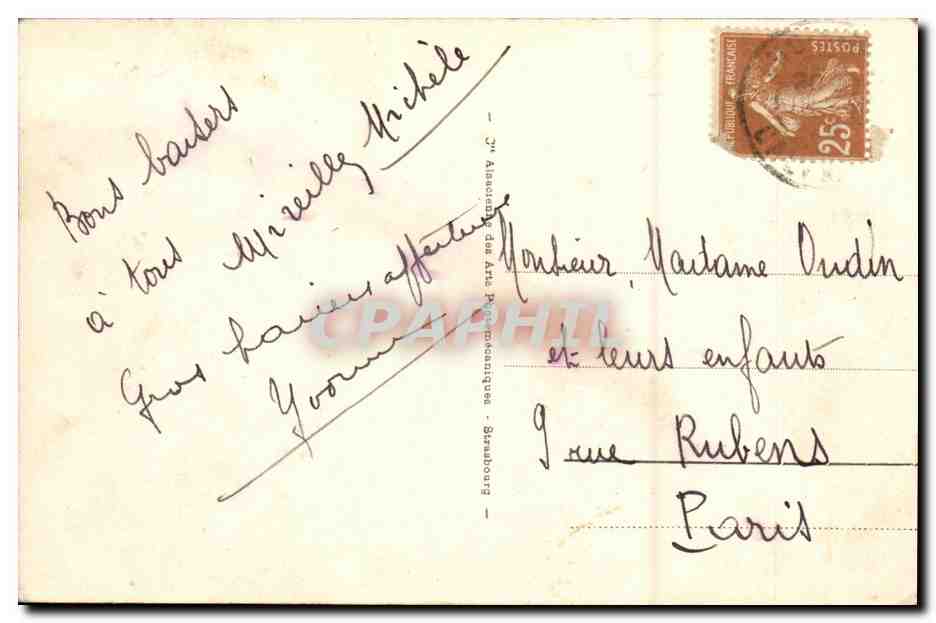 Bons baisers
à tous Mireille, Michèle
Gros baisers affectueux
Yvonne
- Cie Alsacienne des Arts Photomécaniques - Strasbourg -
RÉPUBLIQUE FRANÇAISE
POSTES
25c
Monsieur, Madame Oudin
et leurs enfants
9 rue Rubens
Paris
CPAPHIL